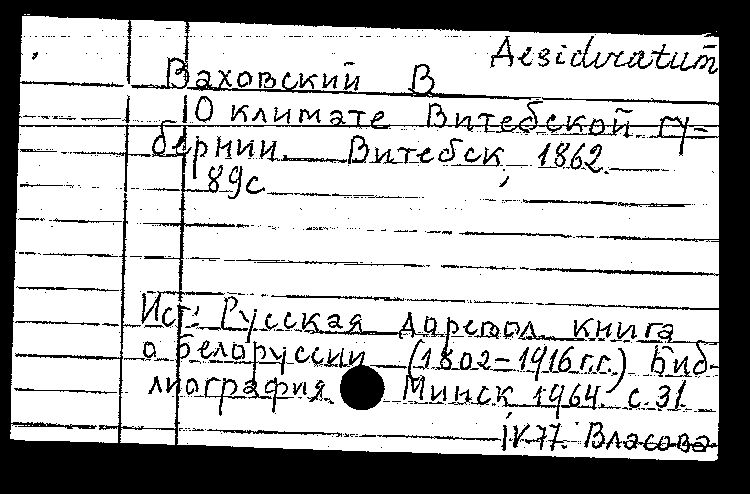 Desideratum
Ваховский В
О климате Витебской гу-
бернии. Витебск, 1862.
89с
Ист: Русская доревол. книга
о Белоруссии (1802-1916г.г.) Биб-
лиография Минск, 1964 с. 31
IV.77. Власова